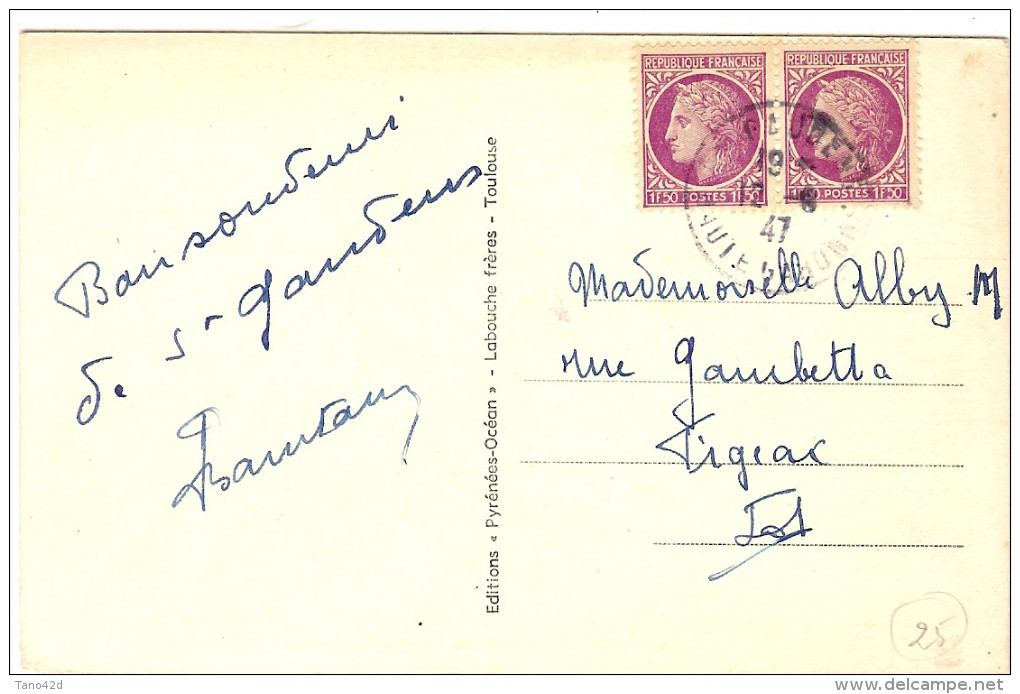 Bon souvenir
de St Gaudens
Editions « Pyrénées-Océan » - Labouche frères - Toulouse
REPUBLIQUE FRANÇAISE
1F50 POSTES 1F50
REPUBLIQUE FRANÇAISE
1F50 POSTES 1F50
GAUDENS
19
12 -8
47
HUTE GARONNE
Mademoiselle Alby M
rue Gambetta
Figeac
Lot
25
Tano42d
www.delcampe.net